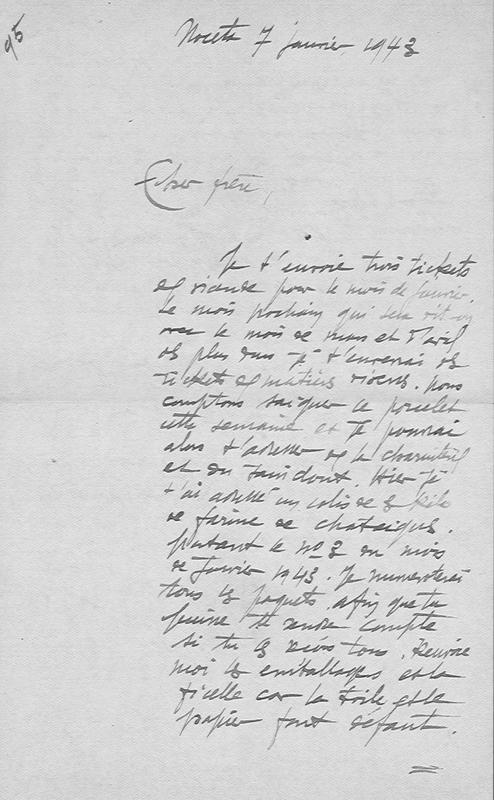 95
Noceta 7 janvier 1943
Cher frère,
Je t'envoie trois tickets
de viande pour le mois de janvier.
Le mois prochain qui sera
avec le mois de mars et d'avril
de plus je t'enverrai des
tickets de matières Nous
comptons saigner ce porcelet
cette semaine et je pourrai
alors t'adresser de la charcuterie
et du saindoux. Hier je
t'ai adressé un colis de 3 kilo
de farine de chataigne.
portant le nº 2 du mois
de Janvier 1943. Je numeroterai
tous les paquets afin que tu
puisse te rendre compte
si tu les reçois tous. Renvoie
moi les emballages et la
ficelle car la toile et le
papier font défaut.